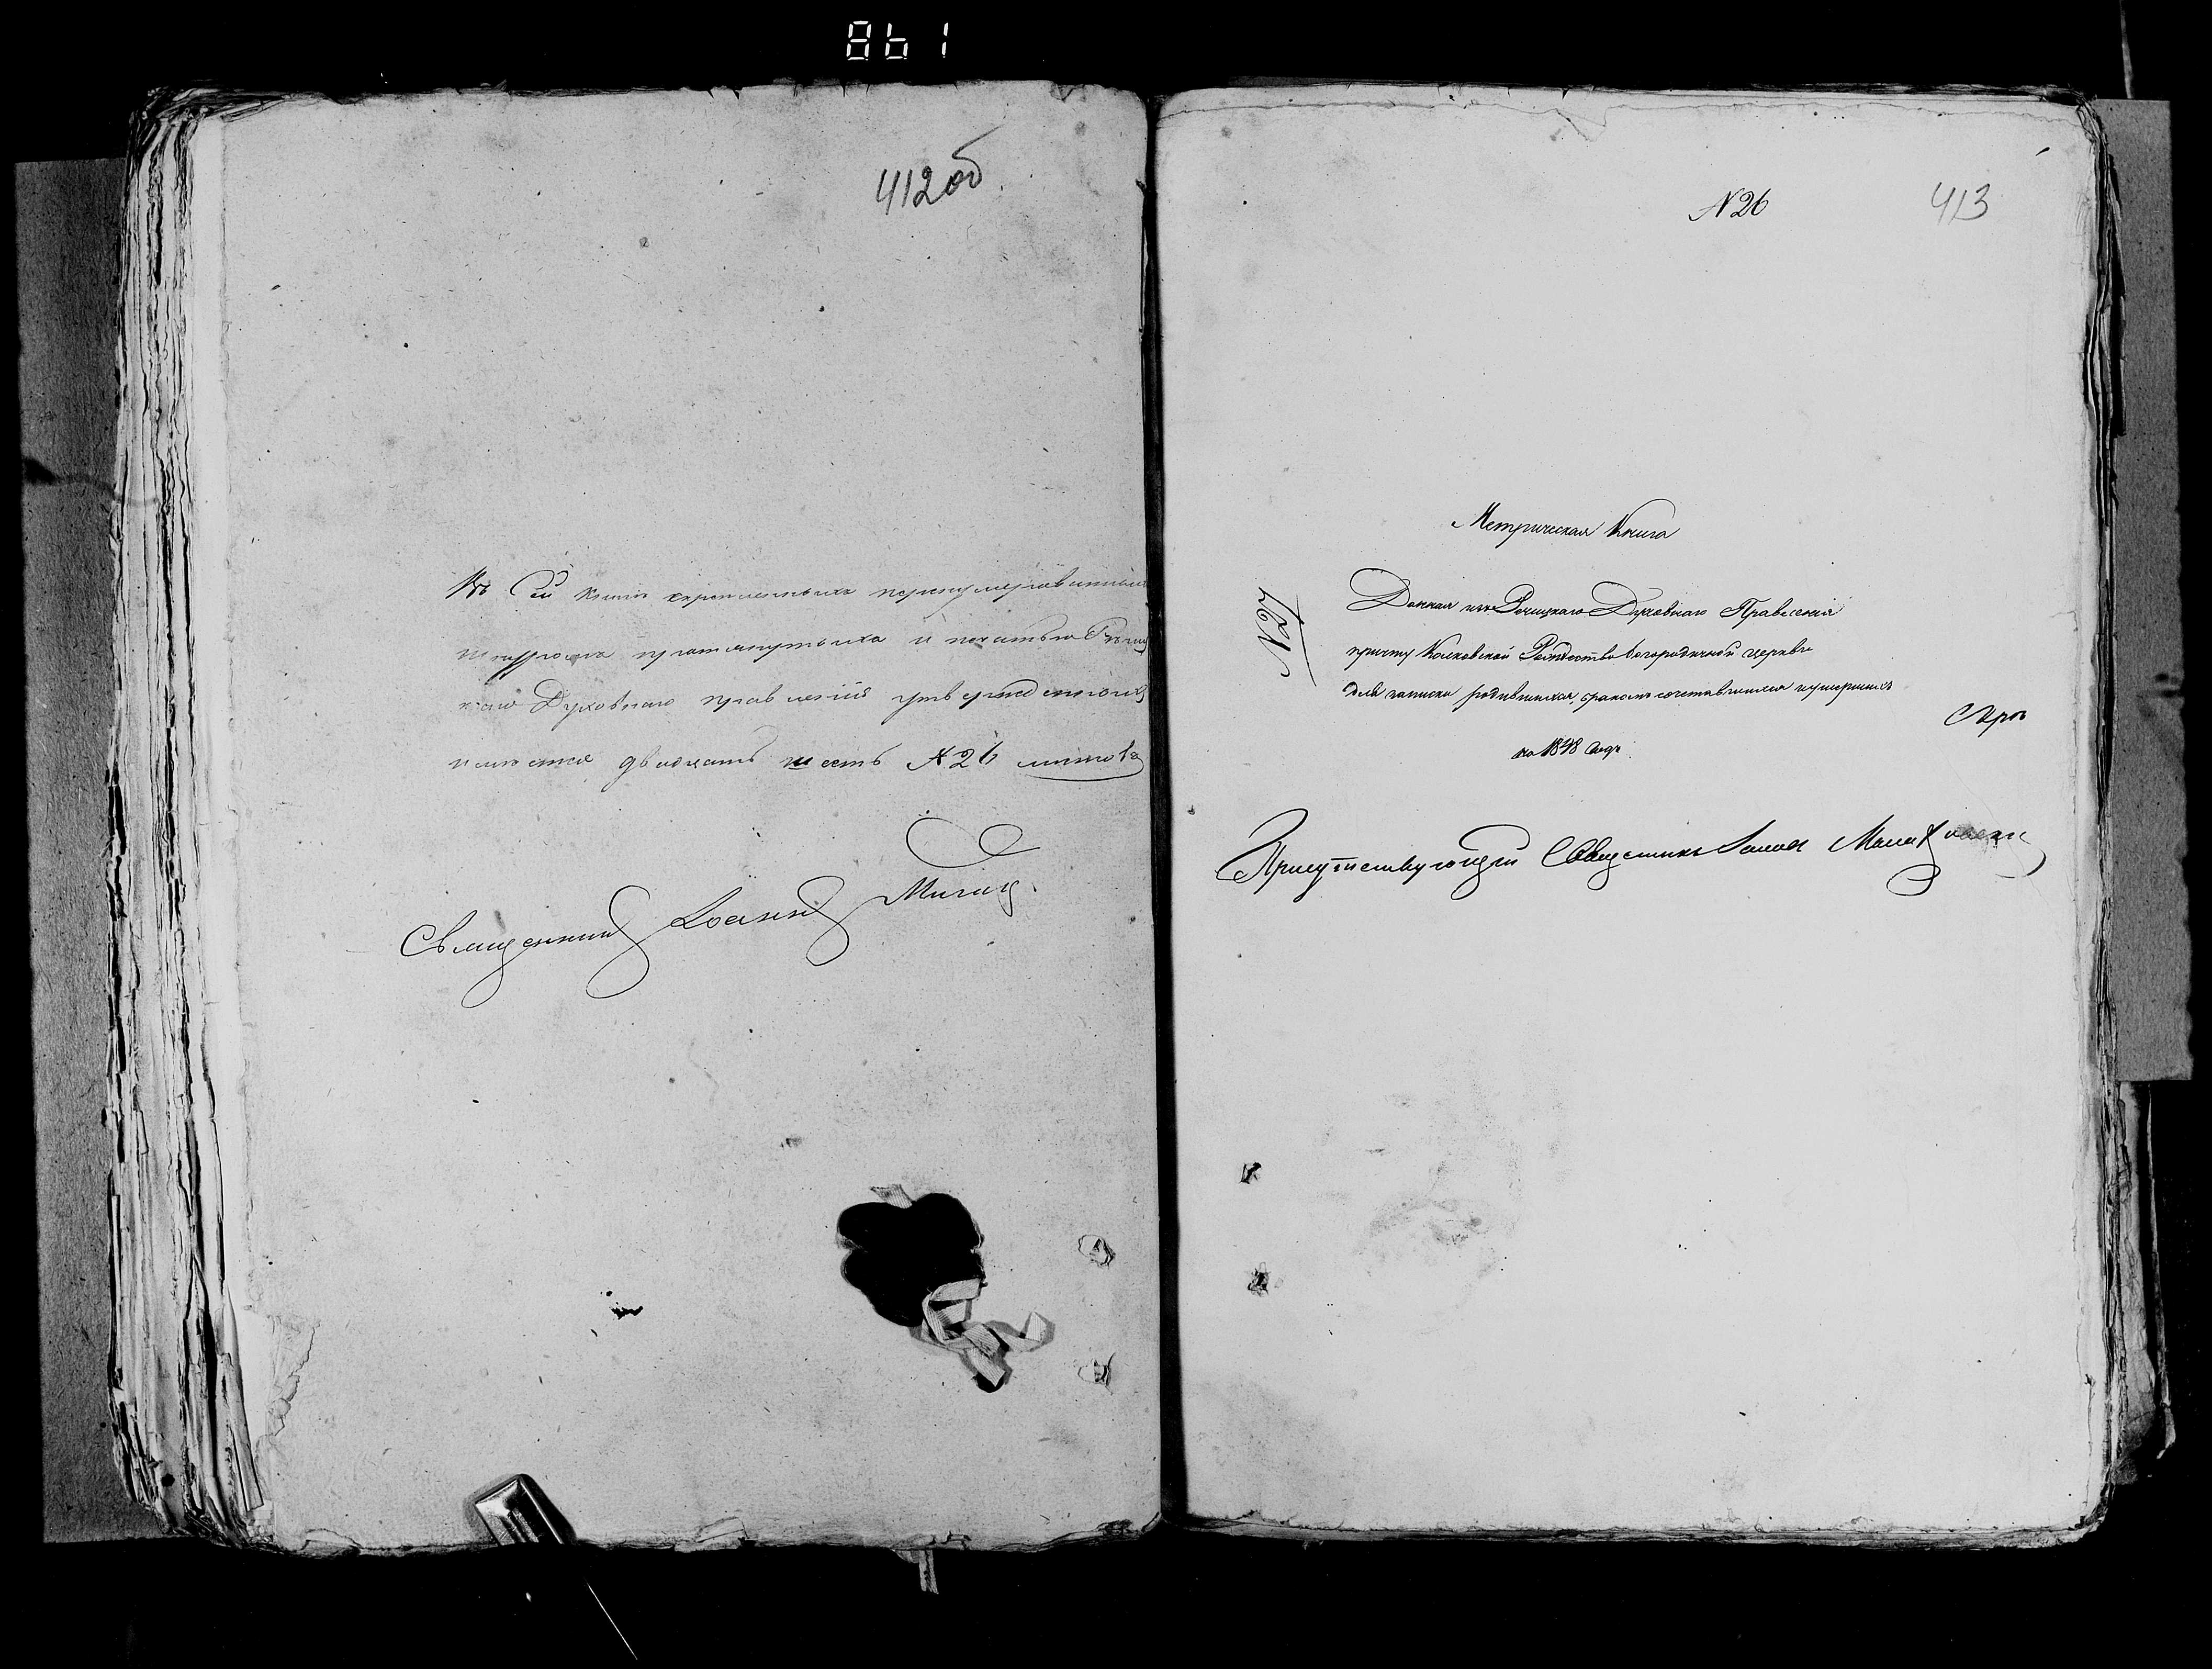 861
412 об
Въ Сей книге скрепленныхъ перенумерованныхъ
шнуромъ протянутыхъ и печатью Речиц
каго Духовнаго правленія утвержденныхъ
имеется двадцать шесть № 26 листовъ
Священникъ Іоаннъ
№ 26
413
Метрическая Книга
№27
Данная изъ Речицкаго Духовнаго Правленія
причту Рождество Богородичной церкви
для записки родившихся, бракомъ сочетавшихся и умершихъ
на 1848 годъ.
Присутствующій Священникъ